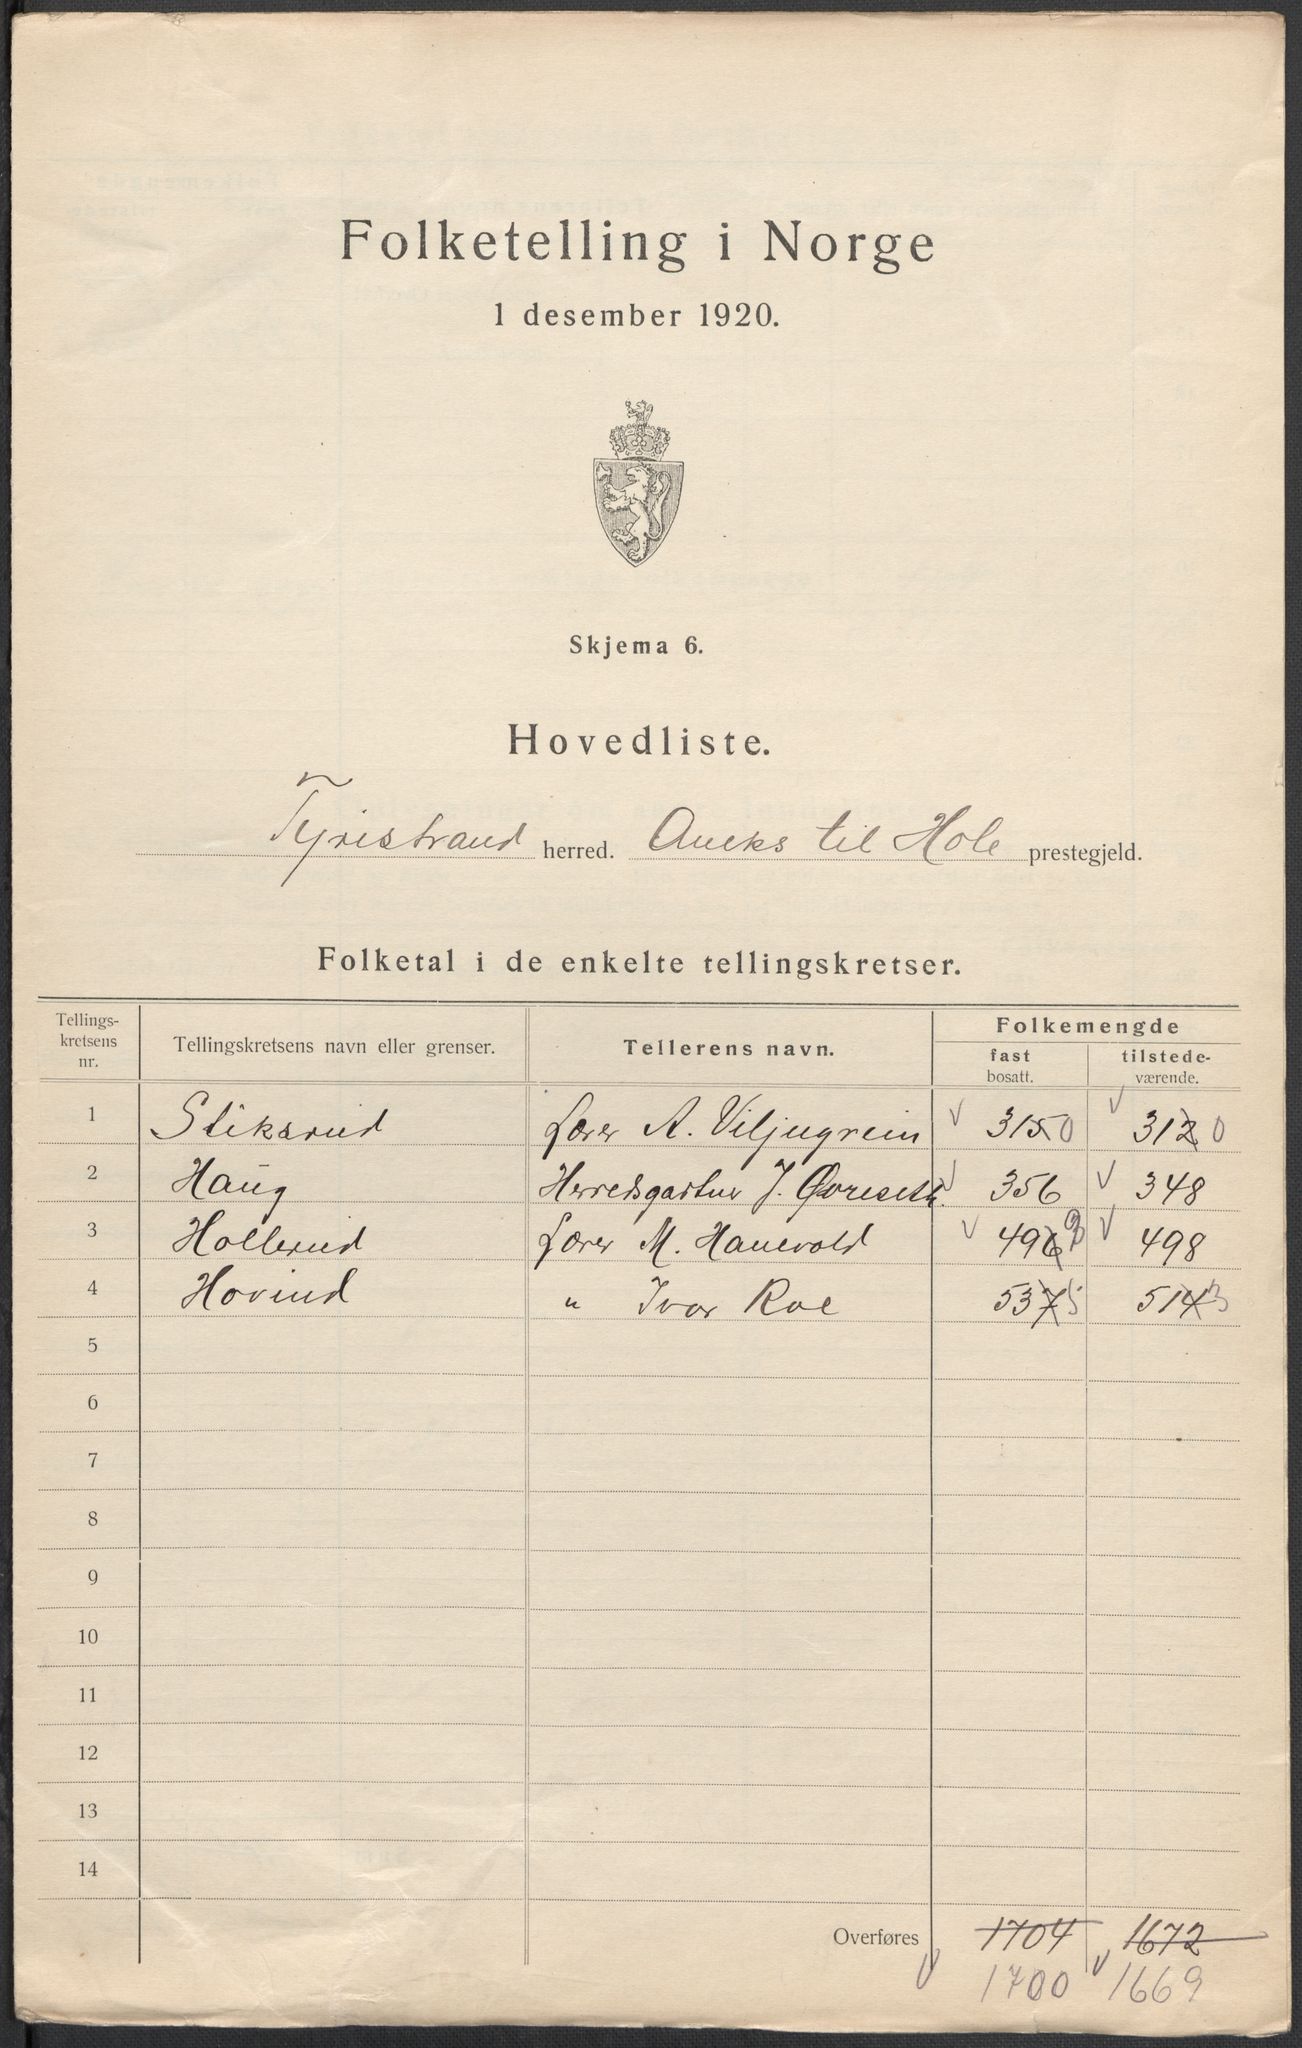 Folketelling i Norge
1 desember 1920.
Skjema 6.
Hovedliste.
Tyristrand herred. Aneks til Hole prestegjeld.
Folketal i de enkelte tellingskretser.
Tellings-
kretsens
nr.
Tellingskretsens navn eller grenser.
Tellerens navn.
Folkemengde
fast
bosatt.
tilstede-
værende.
1 Stiksrud Lærer A. Viljugrein 315 0 312 0
2 Haug Herredsgartner J. Øvreseth. 356 348
3 Hollerud Lærer M. Hanevold 496 9 498
4 Hovind " Ivar Roe 537 5 514 3
5
6
7
8
9
10
11
12
13
14
Overføres 1704 1672
1700 1669